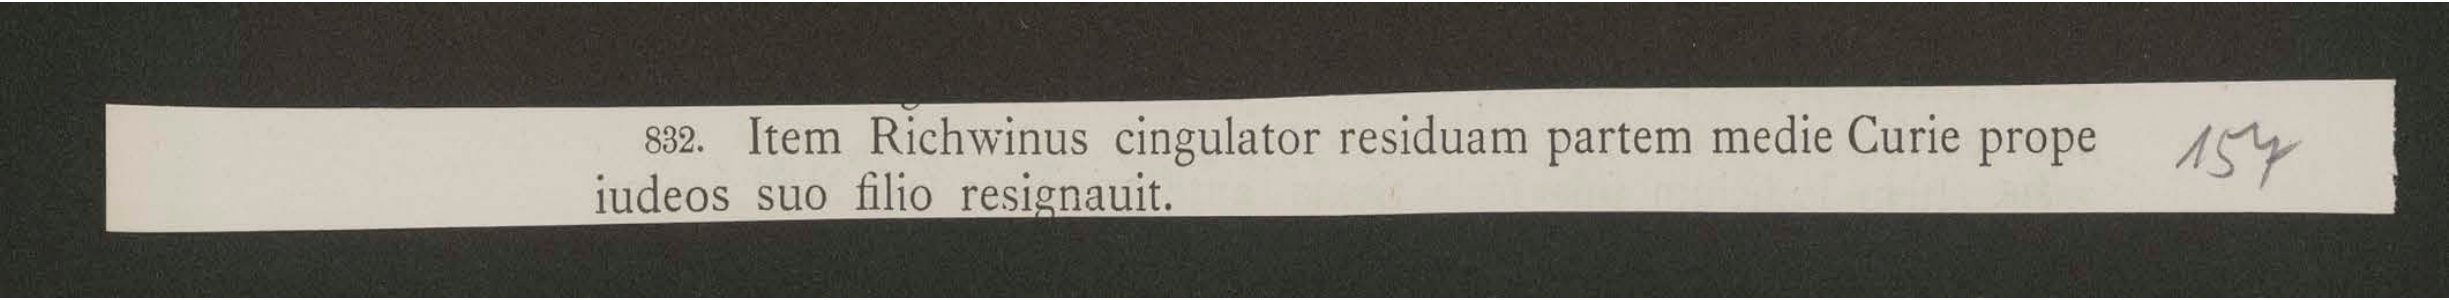 832. Item Richwinus cingulator residuam partem medie Curie prope 157
iudeos suo filio resignauit.